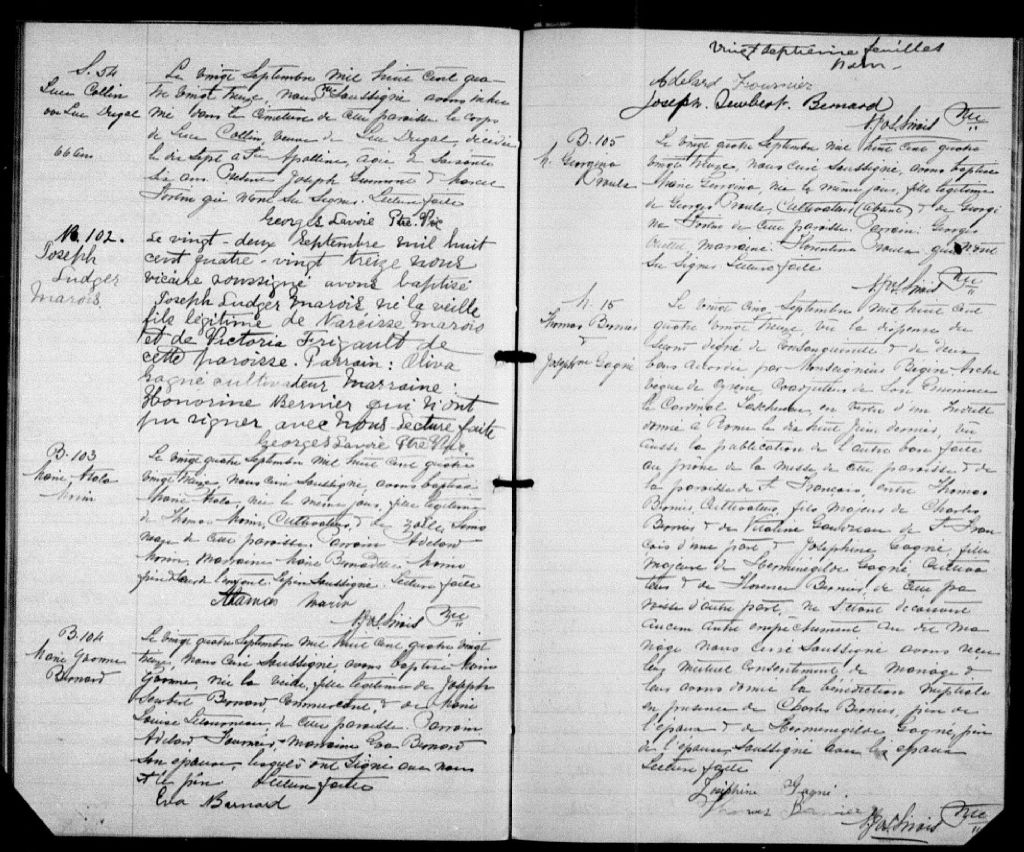 S. 54
Luce Collin
vve Luc Dugal
66 ans
Le vingt Septembre mil huit cent qua
tre vingt treize, nous ptre Soussigné avons inhu
mé dans le cimetière de cette paroisse le corps
de Luce Collin veuve de Luc Dugal, décédée
le dix Sept à St Apolline, agée de Soixante
Six ans. Présents Joseph &
qui n'ont Su Signer. Lecture faite
Georges Lavoie Ptre. Vic
B. 102.
Joseph
Ludger
Marois
Le vingt-deux Septembre mil huit
cent quatre-vingt treize nous
vicaire soussigné avons baptisé
Joseph Ludger Marois né la veille
fils légitime de Narcisse Marois
et de Victoria Frigault de
cette paroisse. Parrain: Oliva
Gagné cultivateur Marraine:
Honorine Bernier qui n'ont
pu signer avec nous. Lecture faite
Georges Lavoie Ptre Vic
B. 103
Marie
Morin
Le vingt quatre Septembre mil huit cent quatre
vingt treize, nous Curé Soussigné, avons baptisé
Marie née le même jour, fille légitime
de Thomas Morin, Cultivateur, & de Zoé
de cette paroisse. Parrain Adelard
Morin, Marraine Marie Bernadette Morin
Soussigné. Lecture faite
Morin
Ptre
B. 104
Marie Yvonne
Bernard
Le vingt quatre Septembre mil huit cent quatre vingt
treize, nous Curé Soussigné avons baptisé Marie
Yvonne née la veille, fille légitime de Joseph
Bernard Commerçant, & de Marie
Louise Letourneau de cette paroisse. Parrain
Adelard Fournier, Marraine Eva Bernard
Son épouse, lesquels ont Signé avec nous
& le père. Lecture faite
Eva Bernard
Vingt Septième feuillet
Adelard Fournier
Joseph. Bernard
Ptre
B. 105
M. Georgina
Proulx
Le vingt quatre Septembre mil huit cent quatre
vingt treize, nous Curé Soussigné, avons baptisé
Marie Georgina, née le même jour, fille légitime
de Georges Proulx, Cultivateur (absent) & de Georgi
na Fortin de cette paroisse. Parrain: Georges
Marraine: Florentine Proulx qui n'ont
Su Signer Lecture faite
Ptre
M. 15
Thomas Bernier
&
Josephine Gagné
Le vingt cinq Septembre mil huit cent
quatre vingt treize, vu la dispense du
degré de Consanguinité & de deux
bans accordée par Monseigneur Bégin Arche
vêque de Cyrène Coadjuteur de Son Eminence
le Cardinal Taschereau, en vertu d'un Indult
donné à Rome le dix huit Juin dernier, vu
aussi la publication de l'autre ban faite
au prône de la messe de cette paroisse & de
la paroisse de St François, entre Thomas
Bernier, Cultivateur, fils majeur de Charles
Bernier & de Vitaline Gaudreau de St Fran
çois d'une part, & Josephine Gagné, fille
majeure de Herménégilde Gagné Cultiva
teur & de Florence Bernier, de cette pa
roisse d'autre part, ne S'étant découvert
aucun autre empêchement au dit ma
riage Nous Curé Soussigné avons reçu
leur mutuel Consentement de mariage &
leur avons donné la bénédiction Nuptiale
en présence de Charles Bernier, père de
l'époux & de Herménégilde Gagné, père
de l'épouse, Soussigné avec les époux
Lecture faite
Joséphine Gagné
Thomas Bernier
Ptre